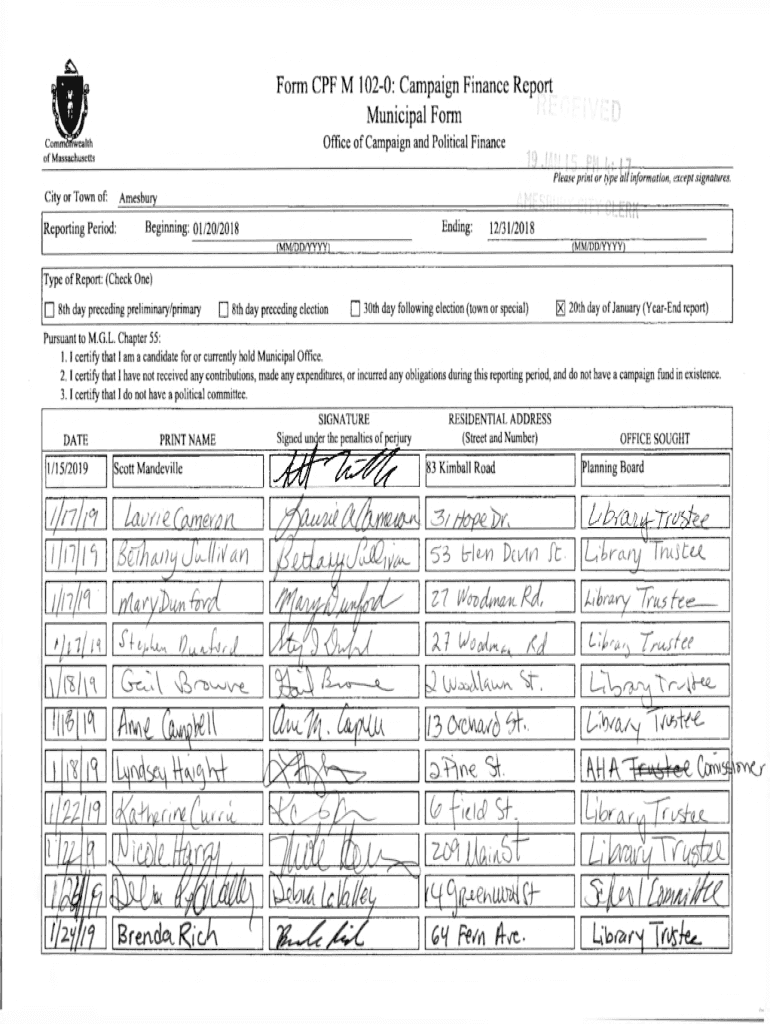 Form CPF M 102-0: Campaign Finance Report
Municipal Form
RECEIVED
Office of Campaign and Political Finance
Commonwealth
of Massachusetts
19 JAN 15 PM 4:17
Please print or type all information, except signatures.
City or Town of: Amesbury
AMESBURY CITY CLERK
Reporting Period: Beginning: 01/20/2018 Ending: 12/31/2018
(MM/DD/YYYY) (MM/DD/YYYY)
Type of Report: (Check One)
8th day preceding preliminary/primary 8th day preceding election 30th day following election (town or special) X 20th day of January (Year-End report)
Pursuant to M.G.L. Chapter 55:
1. I certify that I am a candidate for or currently hold Municipal Office.
2. I certify that I have not received any contributions, made any expenditures, or incurred any obligations during this reporting period, and do not have a campaign fund in existence.
3. I certify that I do not have a political committee.
SIGNATURE RESIDENTIAL ADDRESS
DATE PRINT NAME Signed under the penalties of perjury (Street and Number) OFFICE SOUGHT
1/15/2019 Scott Mandeville 83 Kimball Road Planning Board
1/17/19 Laurie Cameron Laurie A Cameron 31 Hope Dr. Library Trustee
1/17/19 Bethany Sullivan Bethany Sullivan 53 Glen Devin St. Library Trustee
1/17/19 Mary Dunford Mary Dunford 27 Woodman Rd. Library Trustee
1/17/19 Stephen Dunford 27 Woodman Rd Library Trustee
1/18/19 Gail Browne Gail Browne 2 Woodlawn St. Library Trustee
1/18/19 Anne Campbell 13 Orchard St. Library Trustee
1/18/19 Lyndsey Haight 2 Pine St. AHA Trustee Comissioner
1/22/19 Katherine Currie 6 Field St. Library Trustee
1/22/19 Nicole Harry 209 Main St Library Trustee
Debra LaValley Debra LaValley 14 Greenwood St School Committee
1/24/19 Brenda Rich 64 Fern Ave. Library Trustee